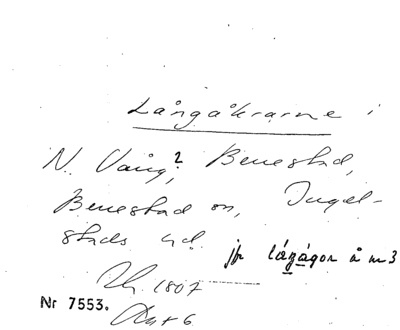 Långåkrarne i
N. Vång, ² Benestad,
Benestad sn, Ingel-
stads hd.
jfr lázágor å m3
1807
Nr 7553.